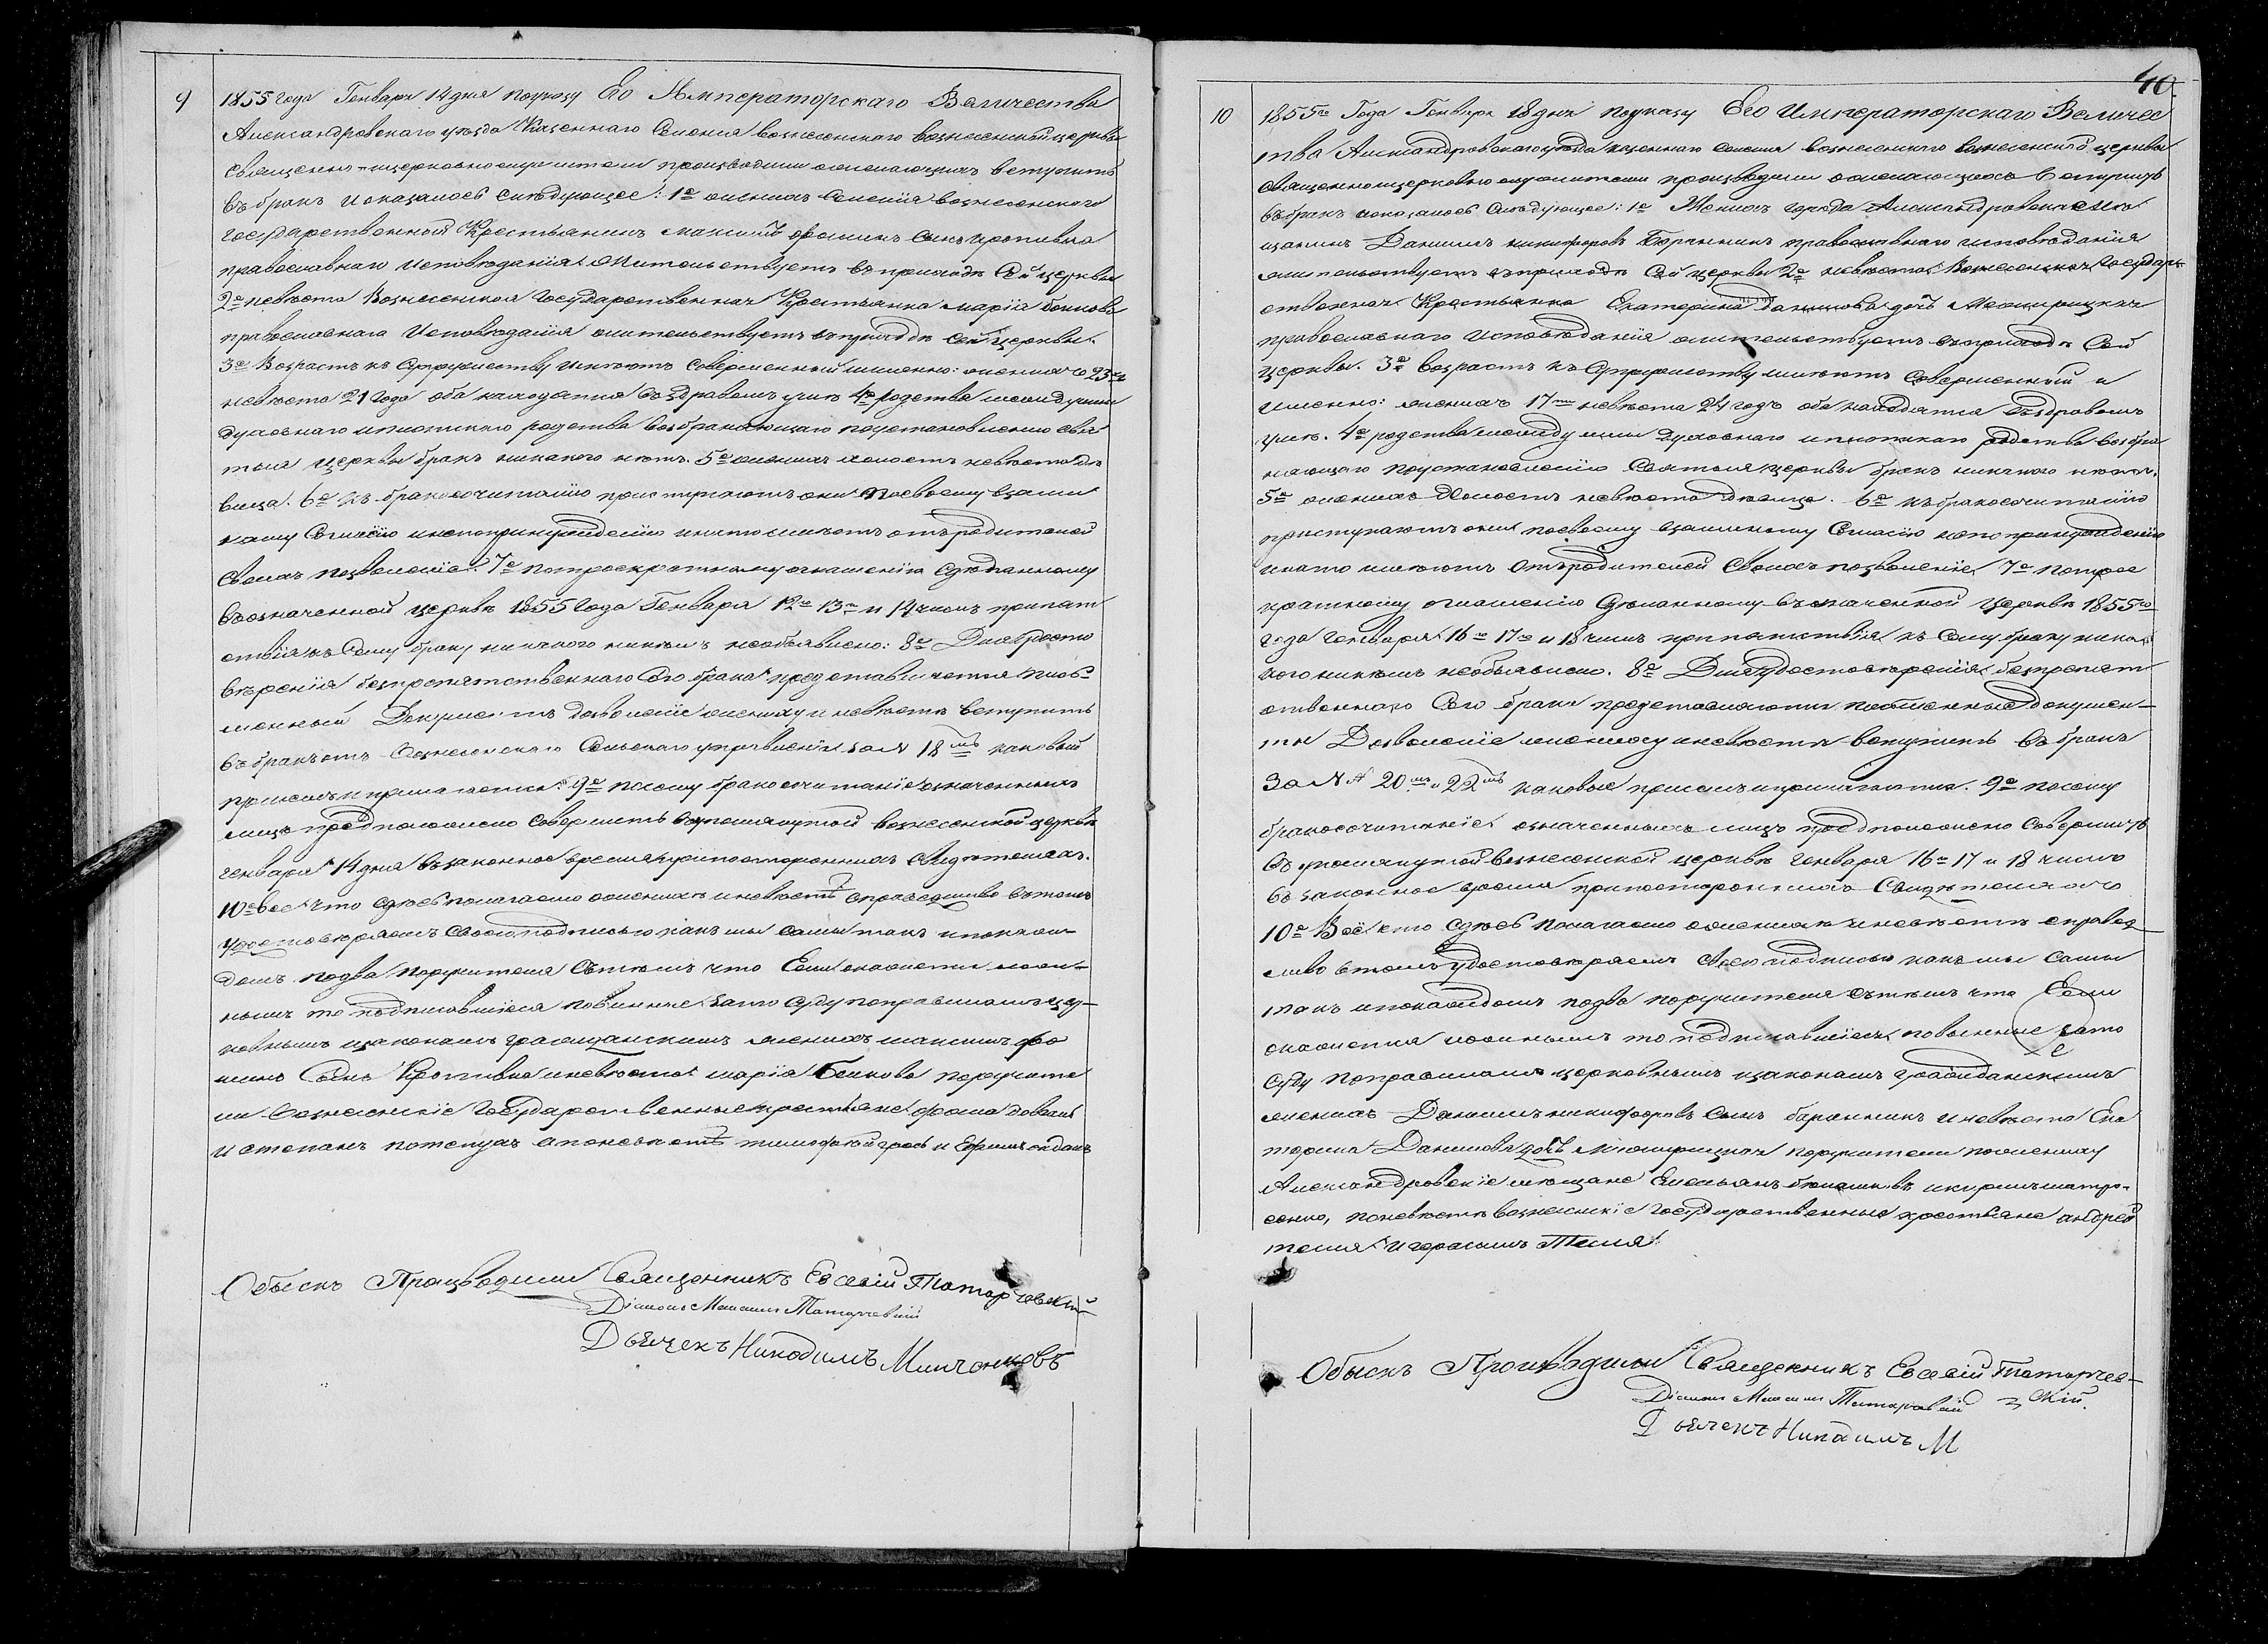 9
1855 года Генваря 14 дня по указу Его Императорскаго Величества
Александровскаго уезда Казеннаго Селения вознесенского вознесенской церкви
священно-церковнослужители производили о желающихъ вступить
въ бракъ и оказалось следующее: 1е женихъ Селения вознесенского
государственной Крестьянинъ максимъ фоминъ сынъ кропивка
православнаго исповедания жительствуетъ въ приходе сей церкви
2е невеста Вознесенская государственная Крестьянка мария
православнаго Исповедания жительствуетъ въ приходе сей церкви.
3е Возрастъ къ супружеству имеютъ совершенный именно: женихъ 23
невеста 21 года оба находятся въ здравомъ уме 4е родства между ими
духовнаго и плотскаго родства возбраняющаго по установлению свя
тыя церкви бракъ никакого нетъ. 5е женихъ холостъ невеста де
вица. 6е къ бракосочетанию приступаютъ они по своему взаим
ному согласию и не по принуждению и на то имеютъ отъ родителей
своихъ позволение. 7е по троекратному оглашению сделанному
въ означенной церкви 1855 года Генваря 12го 13го и 14 числъ препят
ствия къ сему браку никакого никемъ не объявлено: 8е Для удосто
верения безпрепятственнаго сего брака представляется письм
менный Документъ дозволение жениху и невесте вступить
въ бракъ отъ Вознесенского Сельскаго управления за № 18мъ каковый
при семъ и прилагается. 9е по сему бракосочетание означенныхъ
лицъ предположено совершить въ упомянутой вознесенской церкви
генваря 14 дня въ законное время при посторонныхъ свидетеляхъ.
10е все что здесь показано о женихе и невесте справедливо въ томъ
удостоверяемъ своею подписью какъ мы сами такъ и по каж
домъ по два поручителя съ темъ что Если окажется лож-
нымъ то подписавшиеся повинные за то суду по правиламъ цер-
ковнымъ и законамъ гражданскимъ женихъ максимъ фо
минъ сынъ Кропивка и невеста мария поручите
ли вознесенские государственные крестьяне фома
и степанъ а по невесте тимофей и Ефимъ

Обыскъ Производили Священникъ Евсевий Татарчевский
Диаконъ Татарчевский
Дьячекъ Никодимъ Минчонковъ
40.
10
1855го Года Генваря 18 дня по указу Его Императорскаго Величес
тва Александровскаго уезда казеннаго селения вознесенского вознесенской церкви
священноцерковнослужители производили о желающихъ вступить
въ бракъ и оказалось следующее: 1е Женихъ города Александровска ме
щанинъ Даниилъ никифоровъ Баранникъ православнаго исповедания
жительствуетъ въ приходе сей церкви 2е невеста Вознесенская государ
ственная Крестьянка Екатерина Данилова дочь
православнаго исповедания жительствуетъ въ приходе Сей
церкви. 3е возрастъ къ супружеству имеютъ совершенный и
именно: женихъ 17 невеста 24 годъ оба находятся въ здравомъ
уме. 4е родства между ими духовнаго и плотскаго родства возбра
няющаго по установлению Святыя церкви бракъ никакого нетъ.
5е женихъ Холостъ невеста девица. 6е къ бракосочетанию
приступаютъ они по своему взаимному согласию не по принуждению
и на то имеютъ отъ родителей своихъ позволение 7е по трое
кратному оглашению сделанному въ означенной церкви 1855го
года генваря 16го 17го и 18 числъ препятствия къ сему браку ника
кого никемъ не объявлено. 8е Для удостоверения безпрепят
ственнаго сего брака представляются письменные докумен-
ты Дозволение жениху и невесте вступить въ бракъ
За № 20мъ и 22мъ каковые при семъ и прилагаются. 9е по сему
бракосочетание означенныхъ лицъ предположено совершить
въ упомянутой вознесенской церкви генваря 16го 17 и 18 числъ
въ законное время при посторонныхъ свидетеляхъ
10е Всё что здесь показано о женихе и невесте справед
ливо въ томъ удостоверяемъ своею подписью какъ мы сами
такъ и по каждомъ по два поручителя съ темъ что Если
окажется ложнымъ то подписавшиеся повинные за то
суду по правиламъ церковнымъ и законамъ гражданскимъ
женихъ Даниилъ никифоровъ сынъ баранникъ и невеста Ека
терина Данилова дочь поручители по жениху
Александровские мещане Емельянъ и
по невесте вознесенские государственные крестьяне андрей
и герасимъ

Обыскъ Производили Священникъ Евсевий Татарчев-
ский.
Диаконъ Татарчевский
Дьячекъ Никодимъ М